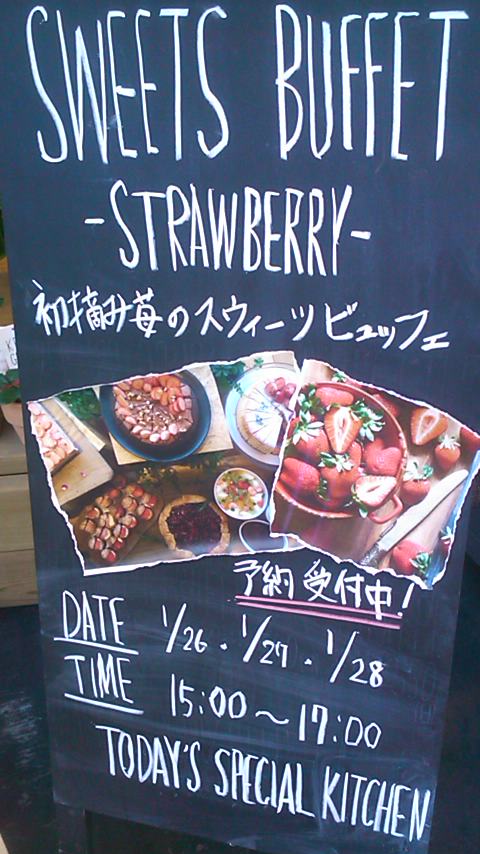 SWEETS BUFFET
-STRAWBERRY-
初摘み苺のスウィーツビュッフェ
予約受付中!
DATE 1/26.1/27.1/28
TIME 15:00〜17:00
TODAY'S SPECIAL KITCHEN